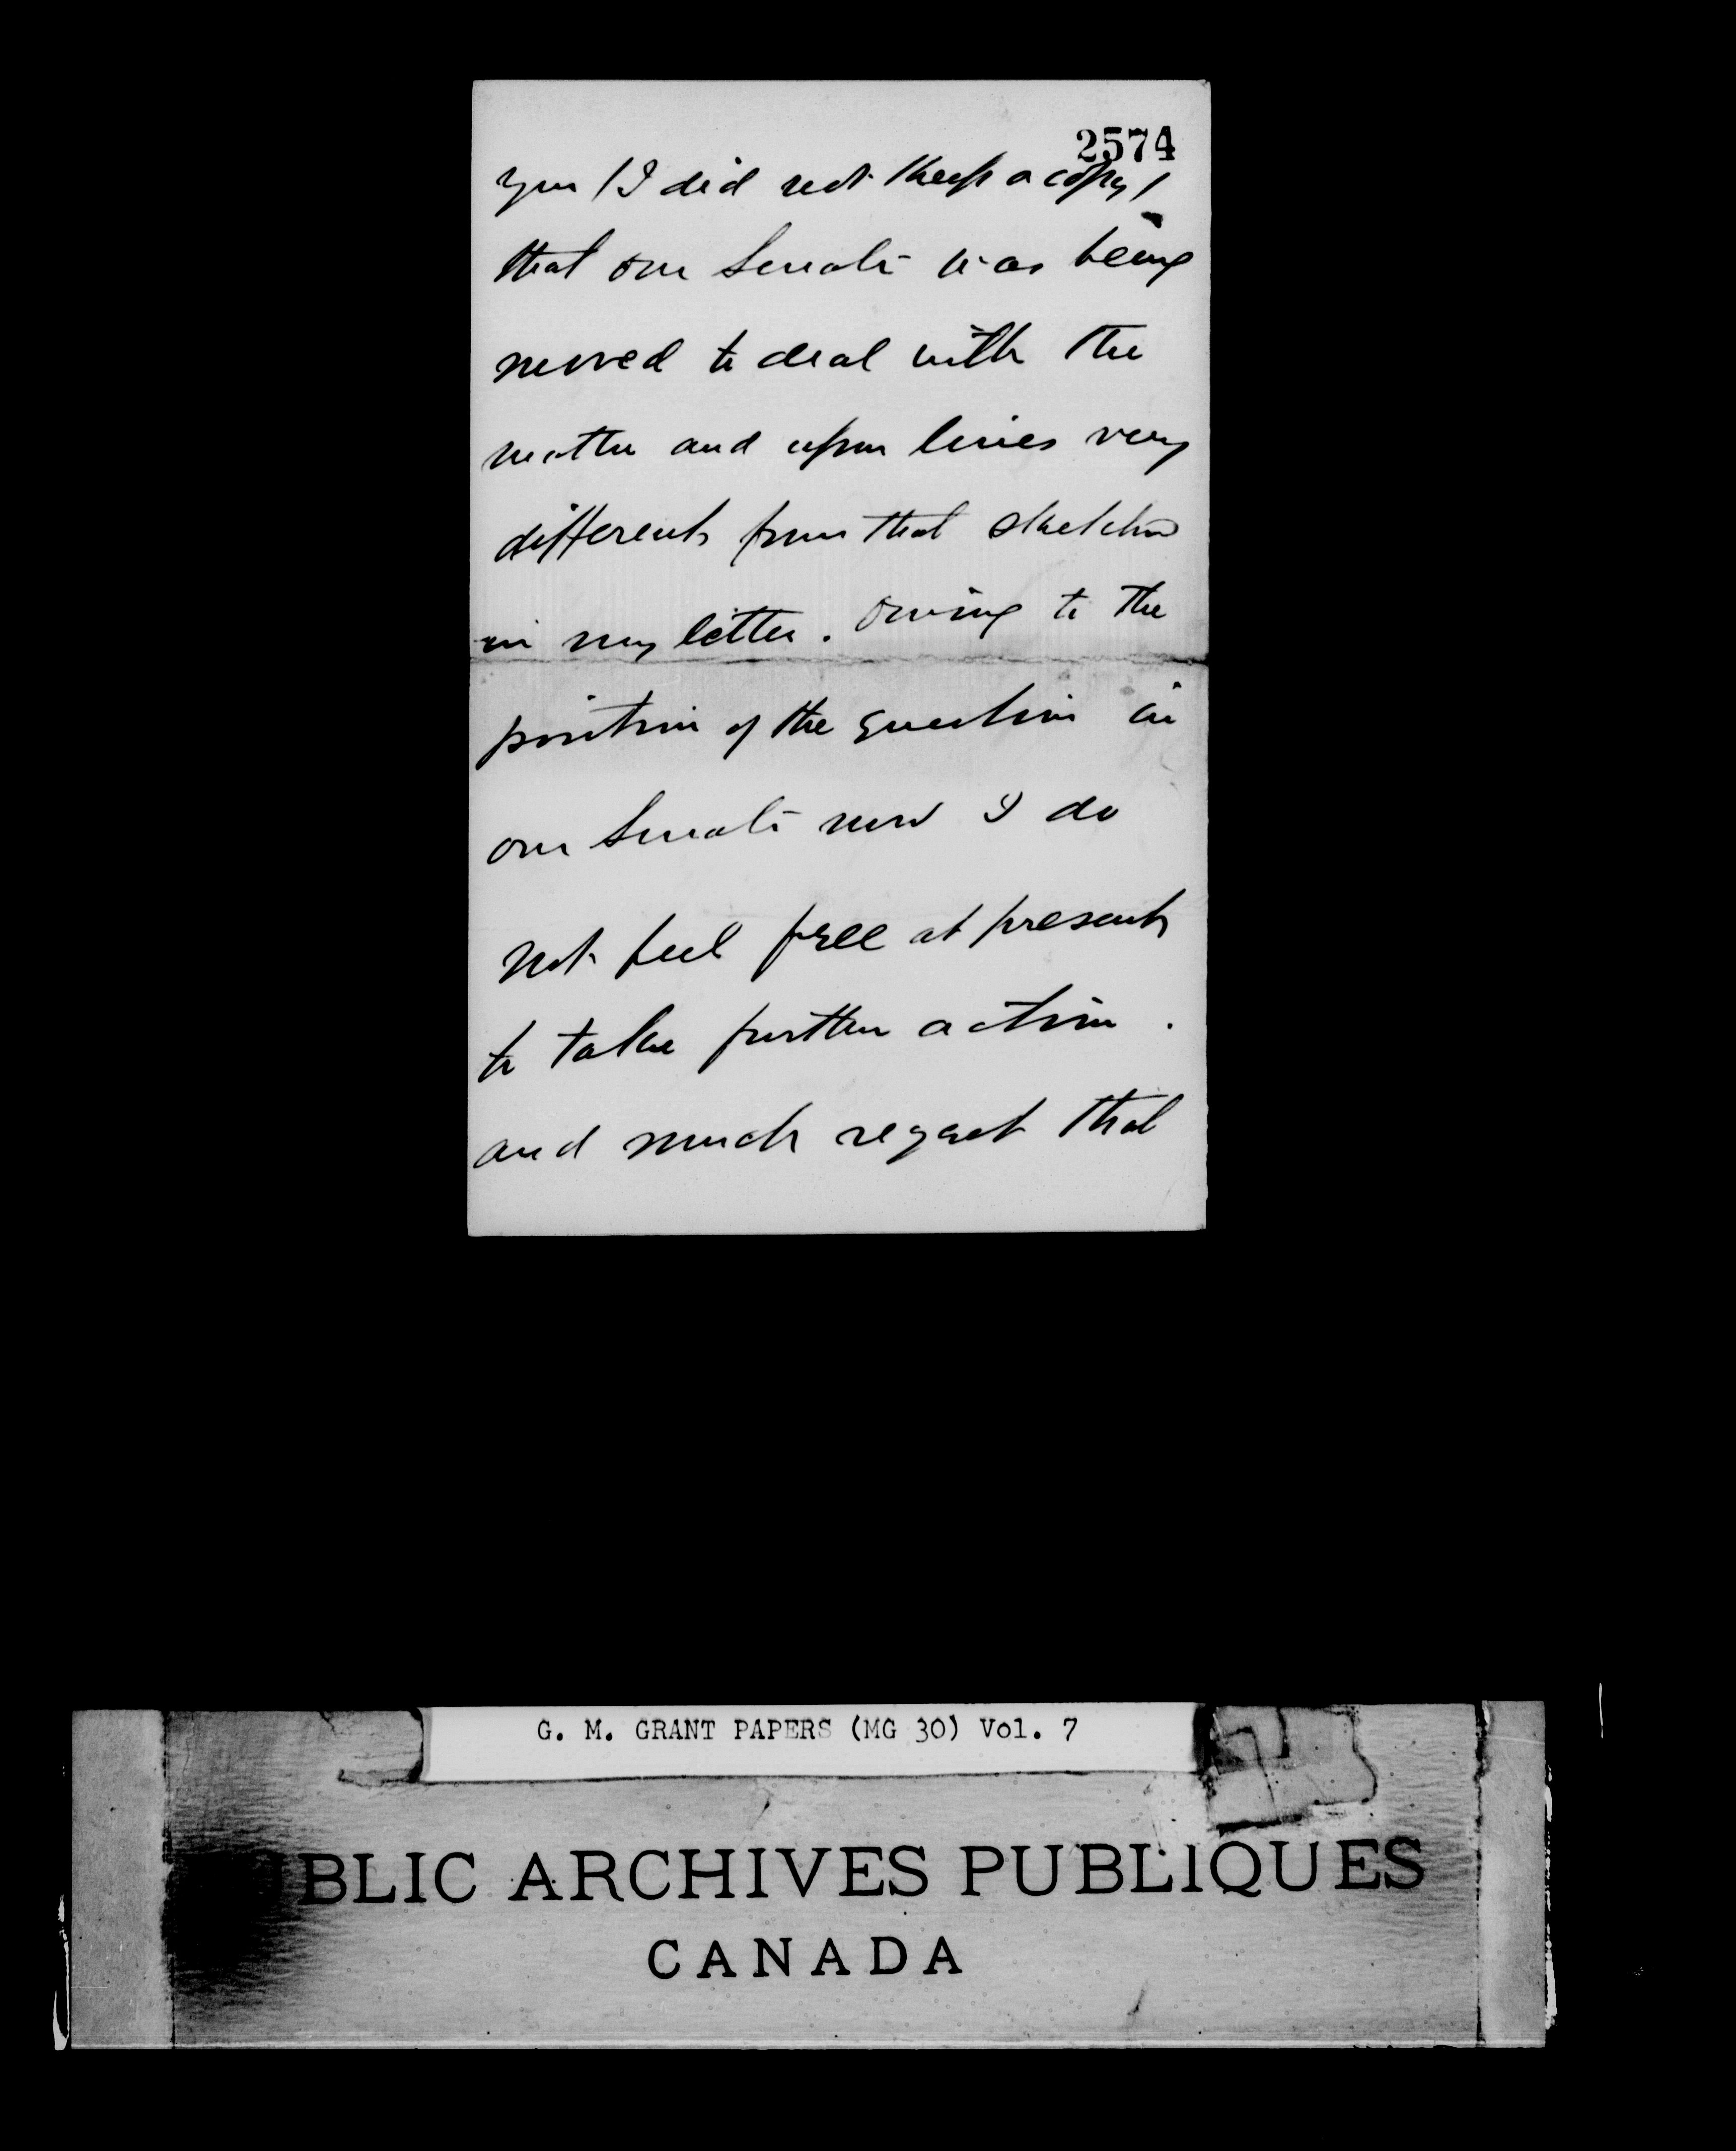 2574
you (I did not keep a copy)
that our Senate was being
moved to deal with the
matter and upon lines very
different from that sketched
in my letter. Owing to the
position of the question in
our Senate now I do
not feel free at present
to take further action.
and much regret that
G. M. GRANT PAPERS (MG 30) Vol. 7
BLIC ARCHIVES PUBLIQUES
CANADA